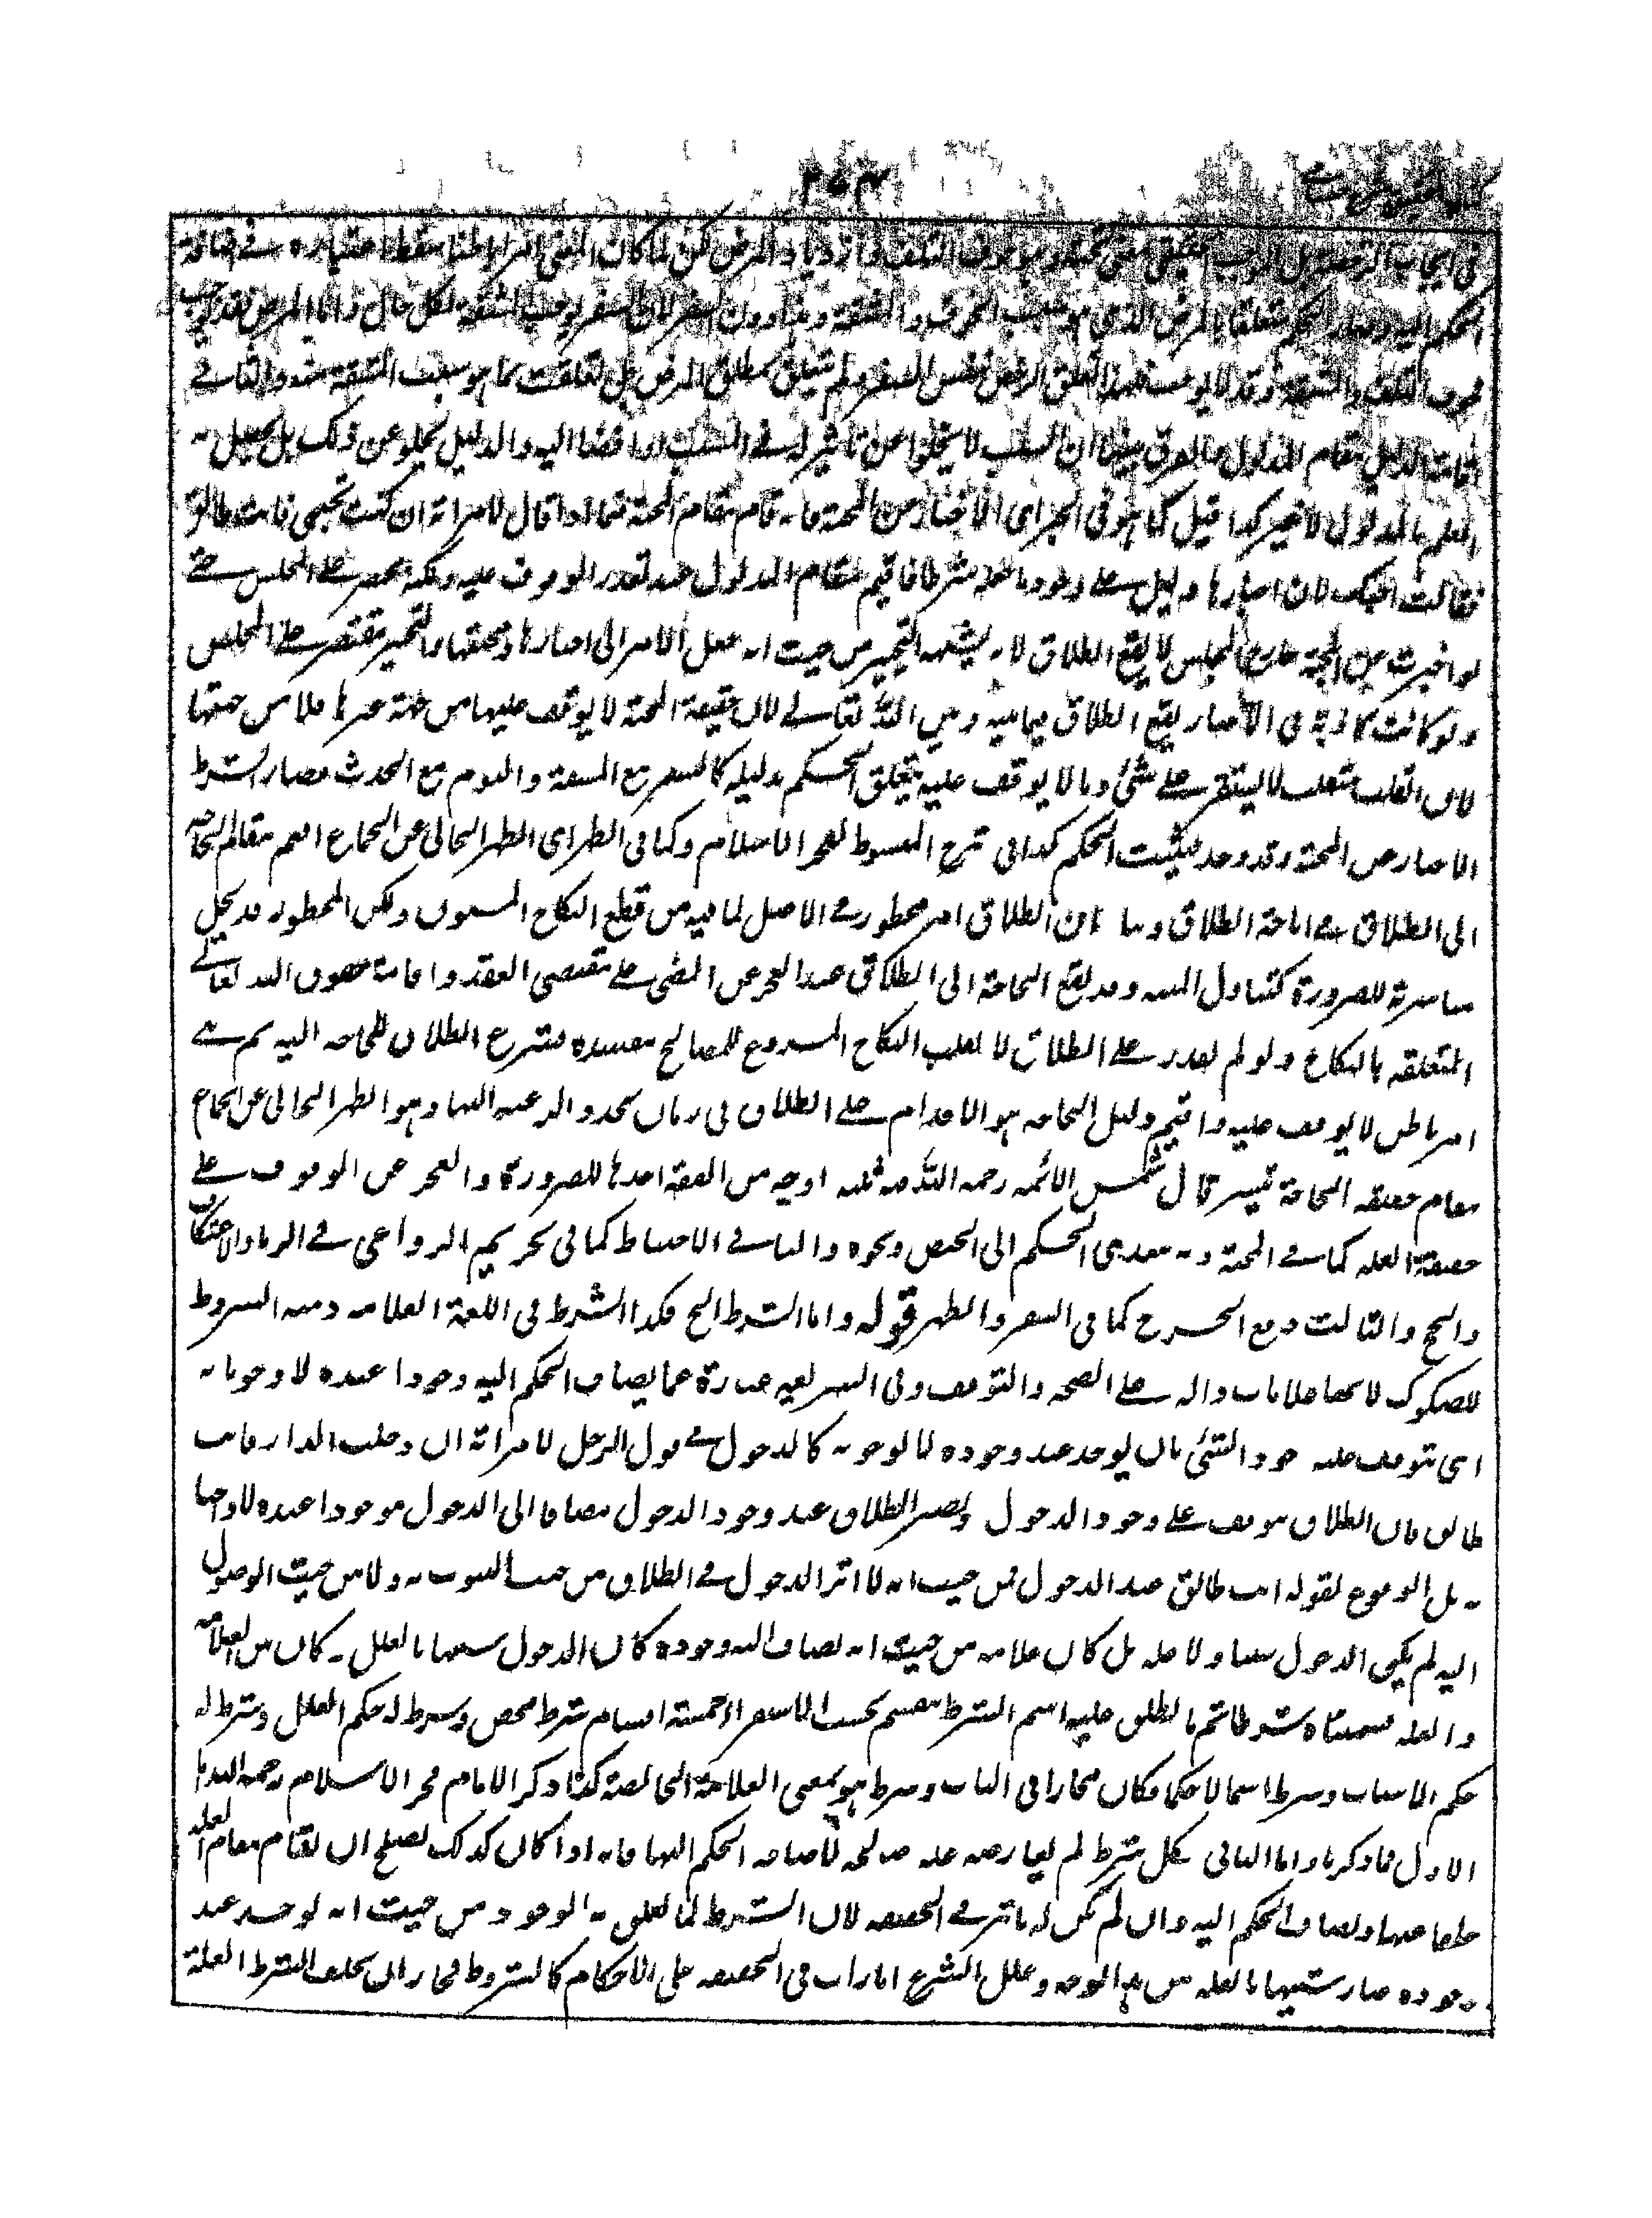 في ايجاب الرخصة بل الموجب الحقيقي معنى تحته وهو خوف التلف او ازدياد المرض لكن لما كان المعنى امرا باطنا سقط اعتباره في اضافة
الحكم اليه وصار الحكم متعلقا بالمرض الذي هو سبب الخوف والمشقة وهذا دون السفر لان السفر يوجب المشقة بكل حال واما المرض فقد يوجب
خوف التلف والمشقة وقد لا يوجب فلهذا تعلق الرخص بنفس السفر ولم يتعلق بمطلق المرض بل تعلقت بما هو سبب المشقة منه والثاني
اقامة الدليل مقام المدلول والفرق بينهما ان السبب لا يخلو عن تاثير له في المسبب او افضاء اليه والدليل يخلو عن ذلك بل يحصل به
العلم بالمدلول لا غير كذا قيل كما في الخبر اي الاخبار عن المحبة فانه قام مقام المحبة فيما اذا قال لامراته ان كنت تحبيني فانت طالق
فقالت احبك لان اخبارها دليل على وجود ما جعله شرطا فاقيم مقام المدلول عند تعذر الوقوف عليه ولكنه يقتصر على المجلس حتى
لو اخبرت عن المحبة خارج المجلس لا يقع الطلاق لانه يشبه التخيير من حيث انه جعل الامر الى اخبارها ومحبتها والتخيير مقتصر على المجلس
ولو كانت كاذبة في الاخبار يقع الطلاق فيما بينه وبين الله تعالى لان حقيقة المحبة لا يوقف عليها من جهة غيرها ولا من جهتها
لان القلب متقلب لا يستقر على شئ وما لا يوقف عليه يتعلق الحكم بدليله كالسفر مع المشقة والنوم مع الحدث فصار الشرط
الاخبار عن المحبة وقد وجد فيثبت الحكم كذا في شرح المبسوط لفخر الاسلام وكما في الطهر اي الطهر الخالي عن الجماع اقيم مقام الحاجة
الى الطلاق في اباحة الطلاق وبيانه ان الطلاق امر محظور في الاصل لما فيه من قطع النكاح المسنون ولكن المحظور قد يحل
مباشرته للضرورة كتناول الميتة وقد يقع الحاجة الى الطلاق عند العجز عن المضي على مقتضى العقد واقامة حقوق الله تعالى
المتعلقة بالنكاح ولو لم يقدر على الطلاق لانقلب النكاح المشروع للمصالح مفسدة فشرع الطلاق للحاجة اليه ثم هي
امر باطن لا يوقف عليه واقيم دليل الحاجة هو الاقدام على الطلاق في زمان تجدد الرغبة اليها وهو الطهر الخالي عن الجماع
مقام حقيقة الحاجة تيسيرا قال شمس الائمة رحمه الله فيه ثلثة اوجه من الفقه احدها للضرورة والعجز عن الوقوف على
حقيقة العلة كما في المحبة وبه يتعدى الحكم الى الحيض ونحوه والثاني الاحتياط كما في تحريم الدواعي في الزنا والاعتكاف
والحج والثالث دفع الحرج كما في السفر والطهر قوله واما الشرط الخ فكذا الشرط في اللغة العلامة ومنه الشروط
للصكوك لانها علامات دالة على الصحة والتوقف وفي الشريعة عبارة عما يضاف الحكم اليه وجودا عنده لا وجوبا به
اي يتوقف عليه وجود الشئ بان يوجد عند وجوده لا لوجوبه كالدخول في قول الرجل لامراته ان دخلت الدار فانت
طالق فان الطلاق يتوقف على وجود الدخول ويصير الطلاق عند وجود الدخول مضافا الى الدخول موجودا عنده لا واجبا
به بل الوقوع لقوله انت طالق عند الدخول فمن حيث انه لا اثر للدخول في الطلاق من حيث الثبوت به ولا من حيث الوصول
اليه لم يكن الدخول سببا ولا علة بل كان علامة من حيث انه يضاف اليه وجوده كان الدخول شبيها بالعلل فكان بين العلامة
والعلة فسميناه شرطا ثم ما يطلق عليه اسم الشرط ينقسم بحسب الاستقراء خمسة اقسام شرط محض وشرط له حكم العلل وشرط له
حكم الاسباب وشرط اسما لا حكما فكان مجازا في الباب وشرط هو بمعنى العلامة الخالصة كذا ذكر الامام فخر الاسلام رحمه الله اما
الاول فما ذكرنا واما الثاني فكل شرط لم يعارضه علة صالحة لاضافة الحكم اليها فانه اذا كان كذلك يصلح ان يقام مقام العلة
خلفا عنها ويضاف الحكم اليه وان لم يكن له تاثير في الحقيقة لان الشرط لما تعلق به الوجود من حيث انه يوجد عند
وجوده صار شبيها بالعلة من هذا الوجه وعلل الشرع امارات في الحقيقة على الاحكام كالشروط فجاز ان يخلف الشرط العلة